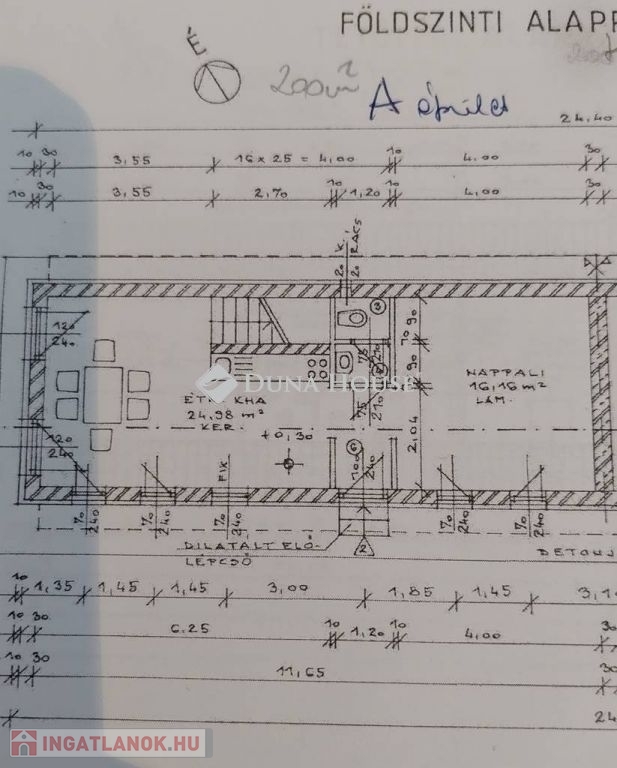 FÖLDSZINTI ALAPR
É
200m²
A épület
24.40
10 30 3,55 16 x 25 = 4,00 10 4.00 30
10 30 3,55 2,70 10 1,20 10 4,00 30
20 20 K. RÁCS
120
240
10 90
75
90
NAPPALI
16,16 m²
LÁM.
DUNA HOUSE
ÉTK. KHA
24,98 m²
KER.
75 210
2,04
120
240
+0,30
FIX
100
240
70 240
70 240
70 240
70 240
70 240
DILATÁLT ELŐ-
LÉPCSŐ
2
10 1,35 1,45 1,45 3,00 1,85 1,45 3,1
10 30 6.25 10 1,20 10 4,00 30
10 30 11,65 30
24
INGATLANOK.HU